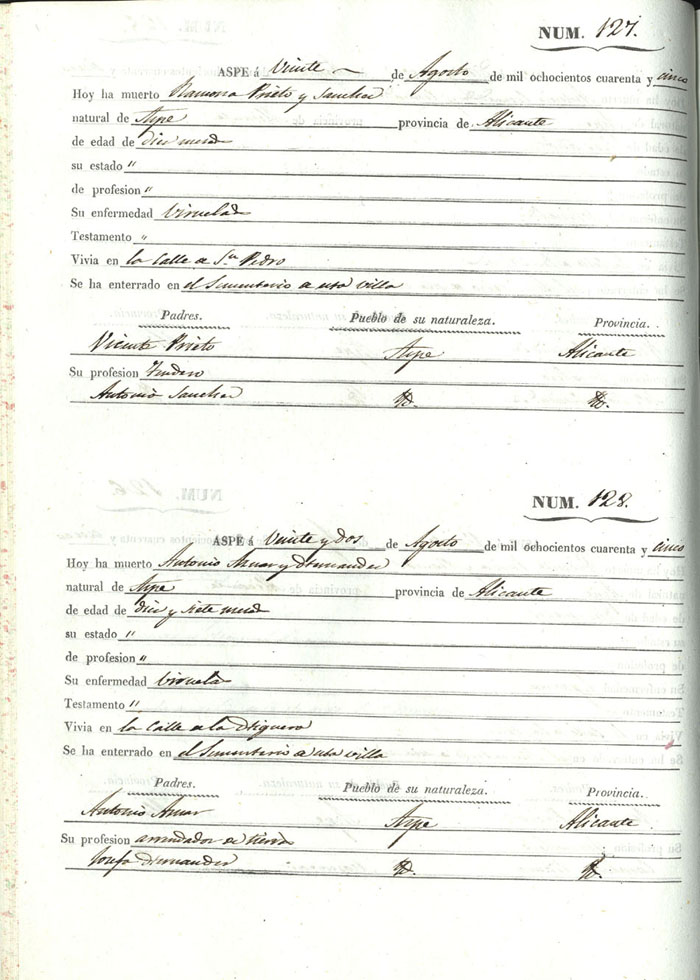 NUM. 127.
ASPE á Vinte de Agosto de mil ochocientos cuarenta y cinco
Hoy ha muerto Ramona Prieto y Sanchez
natural de Aspe provincia de Alicante
de edad de diez meses
su estado "
de profesion "
Su enfermedad Viruelas
Testamento "
Vivia en la Calle de Sn Pedro
Se ha enterrado en el Sementerio de esta villa
Padres. Pueblo de su naturaleza. Provincia.
Vicente Prieto Aspe Alicante
Su profesion
Antonia Sanchez Yd. Yd.
NUM. 128.
ASPE á Vinte y dos de Agosto de mil ochocientos cuarenta y cinco
Hoy ha muerto Antonio Aznar y Hernandez
natural de Aspe provincia de Alicante
de edad de diez y siete meses
su estado "
de profesion "
Su enfermedad Viruelas
Testamento "
Vivia en la Calle de la Higuera
Se ha enterrado en el Sementerio de esta villa
Padres. Pueblo de su naturaleza. Provincia.
Antonio Aznar Aspe Alicante
Su profesion arrendador de tierra
Josefa Hernandez Yd. Yd.